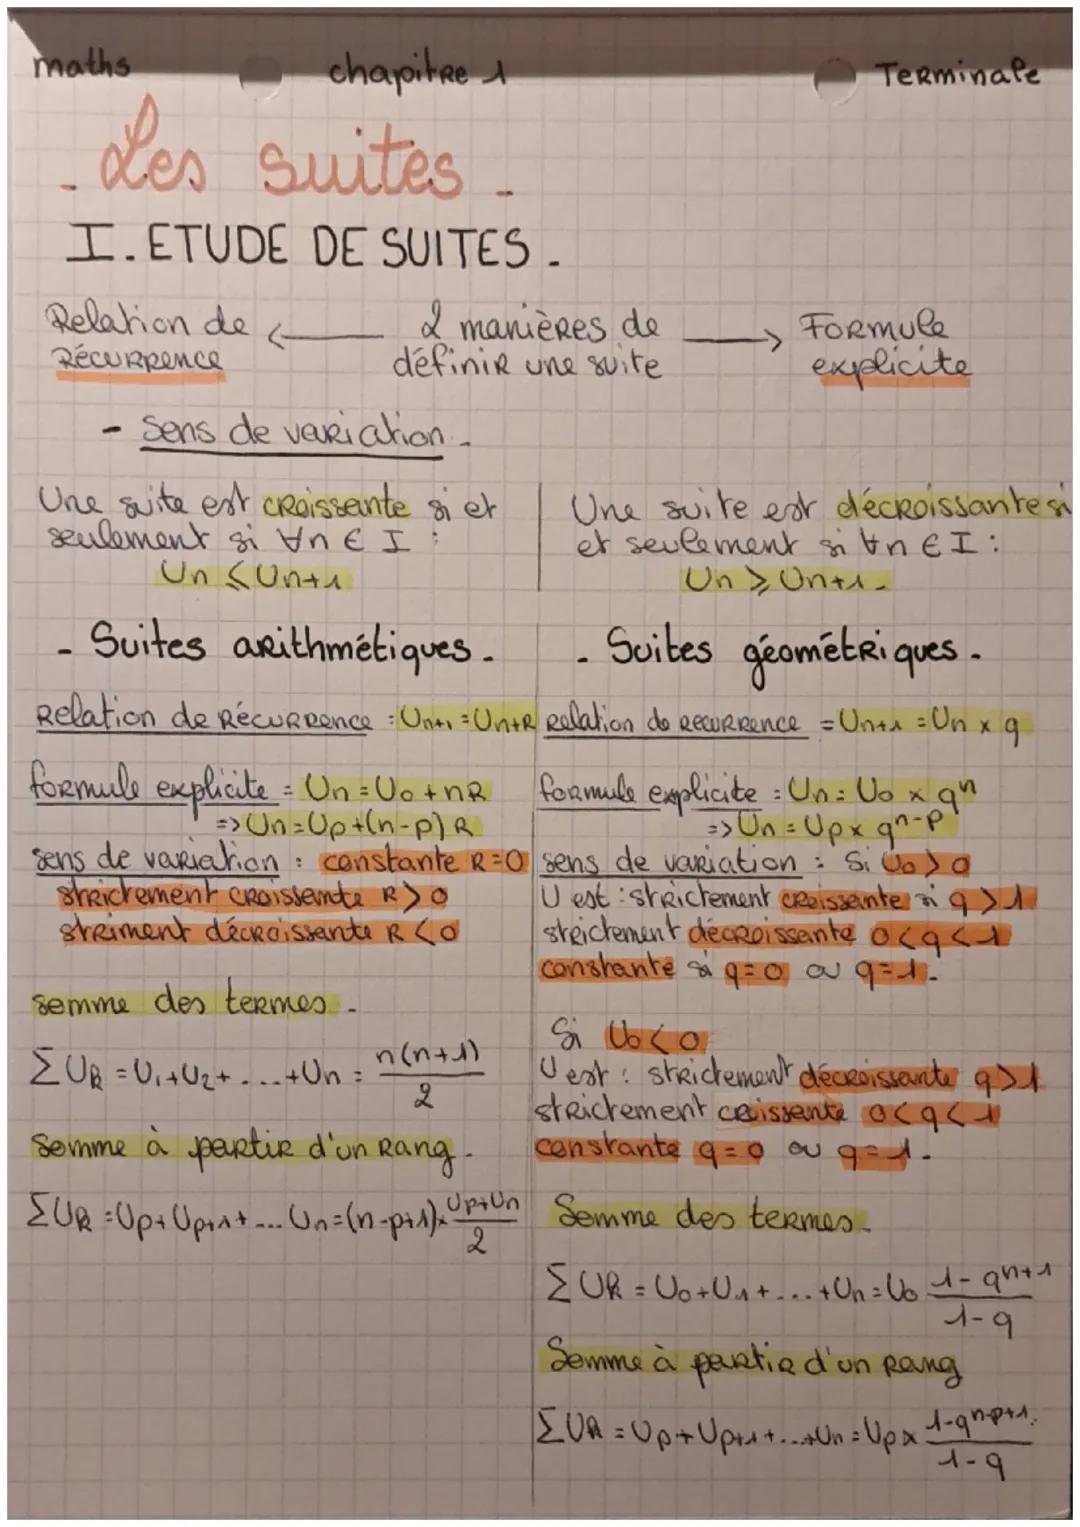 maths chapitre 1 Terminale
- Les suites -
I. ETUDE DE SUITES -
Relation de Récurrence ← 2 manières de définir une suite → Formule explicite
- Sens de variation -
Une suite est croissante si et
seulement si ∀n ∈ I :
Un ≤ Un+1
Une suite est décroissante si
et seulement si ∀n ∈ I :
Un ≥ Un+1 -
- Suites arithmétiques -
Relation de Récurrence : Un+1 = Un+R
formule explicite = Un = U0 + nR
=> Un = Up + (n-p) R
sens de variation : constante R=0
strictement croissante R > 0
striment décroissante R < 0
somme des termes -
∑ Uk = U1 + U2 + ... + Un = n(n+1)/2
Somme à partir d'un Rang -
∑ Uk = Up + Up+1 + ... Un = (n-p+1) × (Up+Un)/2
- Suites géométriques -
Relation de recurrence = Un+1 = Un × q
formule explicite : Un = U0 × q^n
=> Un = Up × q^n-p
sens de variation : Si U0 > 0
U est : strictement croissante si q > 1
strictement décroissante 0 < q < 1
constante si q=0 ou q=1.
Si U0 < 0
U est : strictement décroissante q > 1
strictement croissante 0 < q < 1
constante q=0 ou q=1.
Somme des termes -
∑ Uk = U0 + U1 + ... + Un = U0 (1-q^n+1)/(1-q)
Somme à partir d'un Rang
∑ Uk = Up + Up+1 + ... + Un = Up × (1-q^n-p+1)/(1-q)